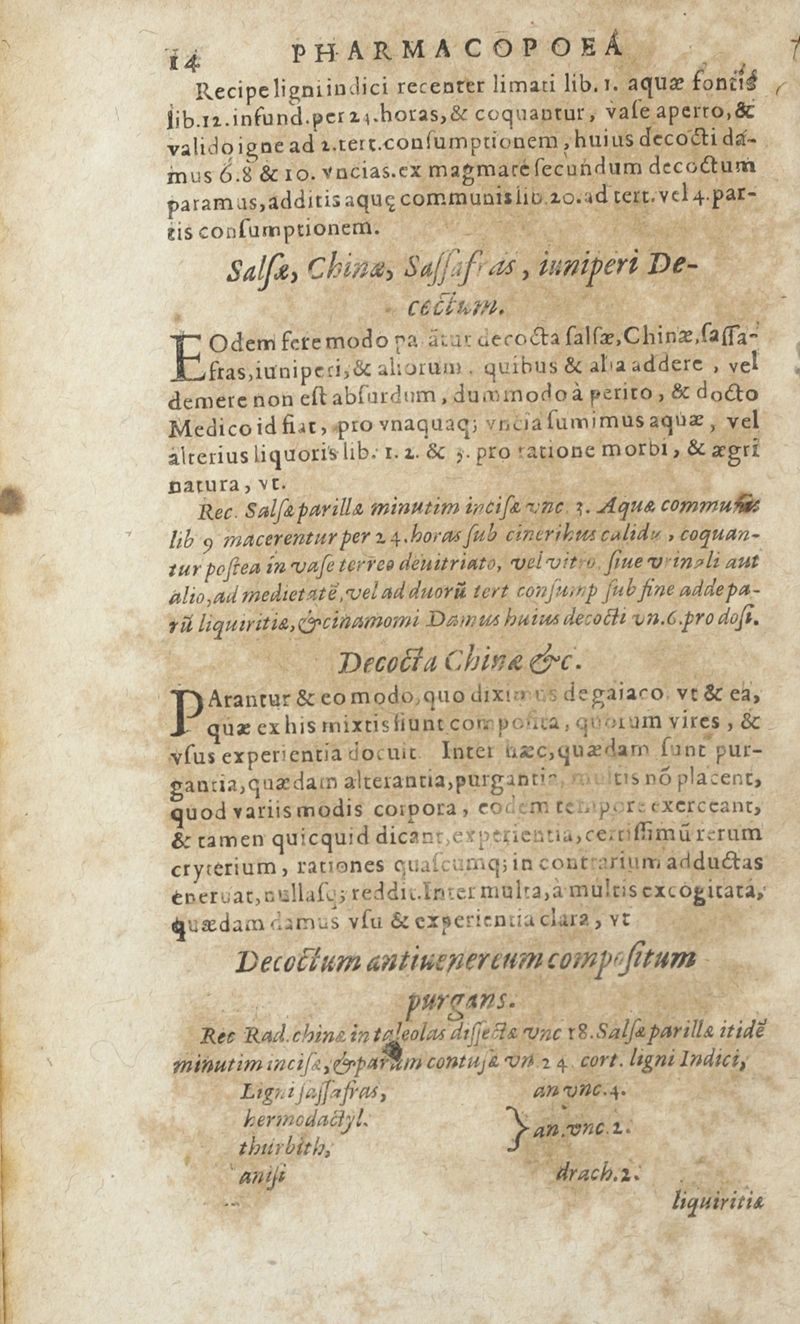 14 PHARMACOPOEÁ
Recipe ligni indici recenter limati lib. 1. aquæ fontis
lib.12.infund.per 24.horas,& coquantur, vase aperto,&
valido igne ad 2.tert.consumptionem, huius decocti da-
mus 6.8 & 10. vncias.ex magmate secundum decoctum
paramus,additis aquę communis lib 20.ad tert.vel 4.par-
tis consumptionem.
Salsæ, Chinæ, Sassafras, iuniperi De-
coctum.
EOdem fere modo pa atur decocta salsæ,Chinæ,sassa-
fras,iuniperi,& aliorum. quibus & alia addere, vel
demere non est absurdum, dummodo à perito, & docto
Medico id fiat, pro vnaquaq; vncia sumimus aquæ, vel
alterius liquoris lib. 1. 2. & 3. pro ratione morbi, & ægri
natura, vt.
Rec. Salsæparillæ minutim incisæ vnc. 3. Aquæ communis
lib 9 macerentur per 24.horas sub cineribus calidis, coquan-
tur postea in vase terreo deuitriato, vel vitro, siue vrinali aut
alio,ad medietatē,vel ad duorū tert consump sub fine adde pa-
rū liquiritiæ,& cinamomi Damus huius decocti vn.6.pro dosi.
Decocta Chinæ &c.
PArantur & eo modo,quo diximus de gaiaco. vt & ea,
quæ ex his mixtis fiunt composita, quorum vires, &
vsus experientia docuit. Inter hæc,quædam sunt pur-
gantia,quædam alterantia,purgantia, multis nō placent,
quod variis modis corpora, eodem tempore exerceant,
& tamen quicquid dicant,experientia,certissimū rerum
cryterium, rationes quascumq; in contrarium adductas
eneruat,nullasq; reddit.Inter multa,a multis excogitata,
quædam damus vsu & experientia clara, vt
Decoctum antiuenereum compositum
purgans.
Rec Rad.chinæ in taleolas dissectæ vnc 18.Salsæparillæ itidē
minutim incisæ,& parum contusæ vn 24. cort. ligni Indici,
Ligni sassafras, an vnc.4.
hermodactyl.
thurbith, } an.vnc.2.
anisi drach.2.
liquiritiæ